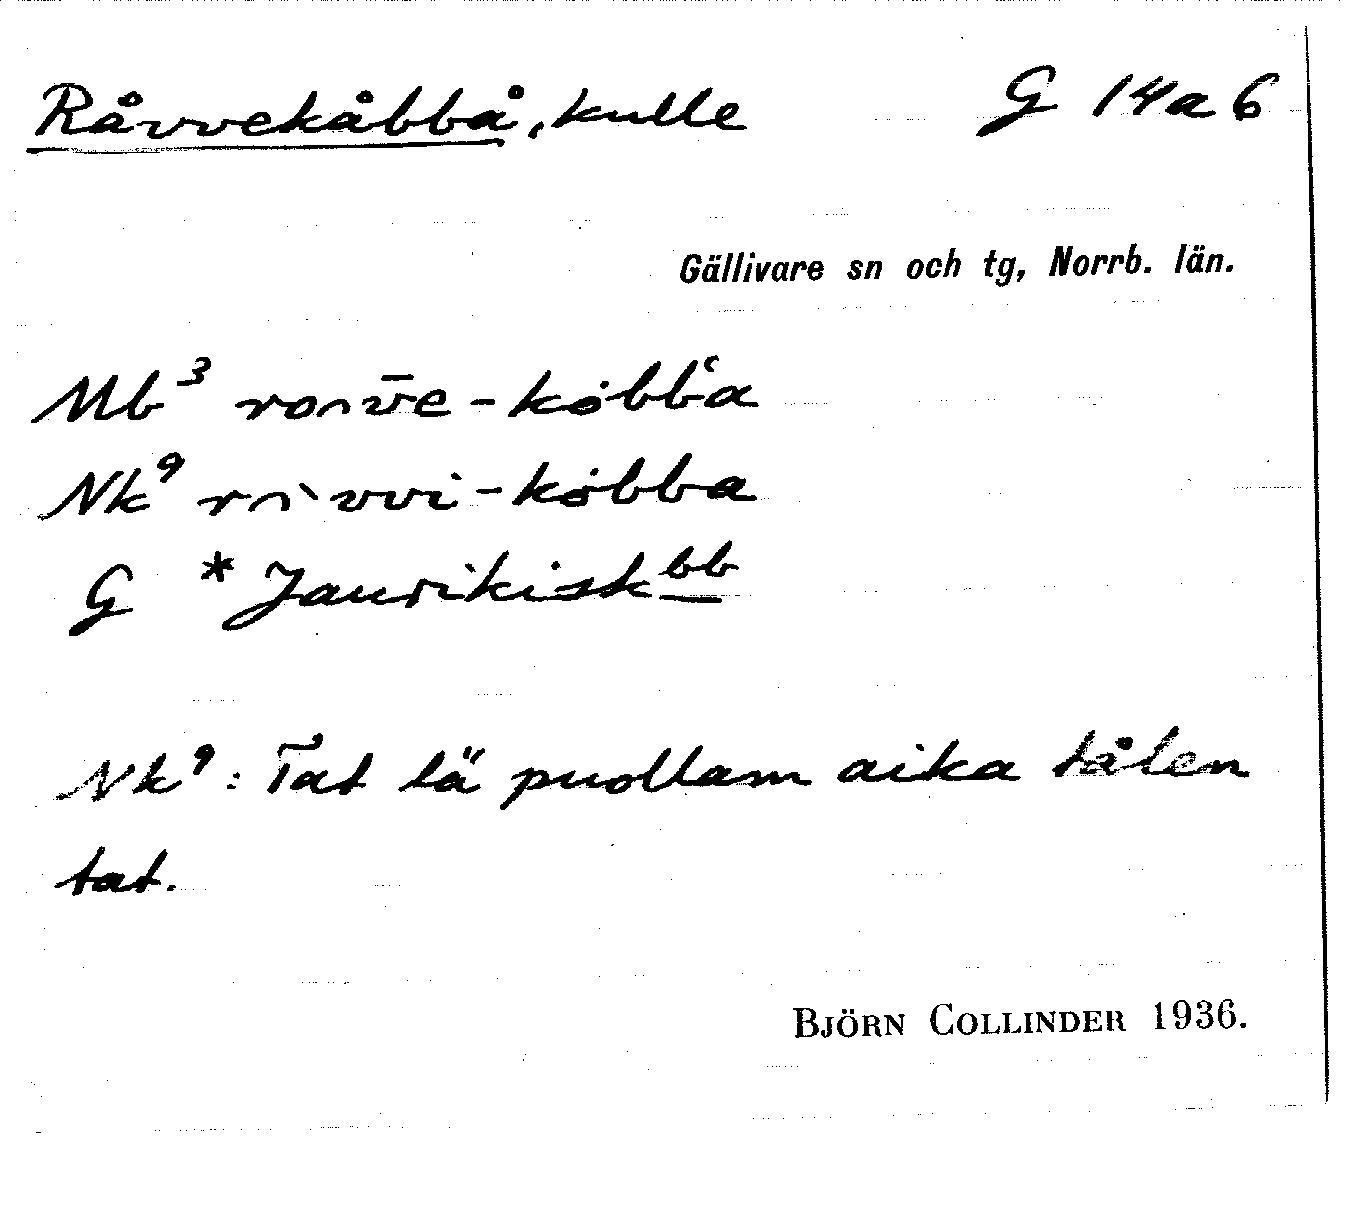 Råvvekåbbå, kulle G 14a6
Gällivare sn och tg, Norrb. län.
Mb³ -kȯbb‘a
Nk⁹ -kȯbba
G *Jaurikisk<sup>bb</sup>
Nk⁹: Tat lä puollam aika tålen
tat.
BJÖRN COLLINDER 1936.